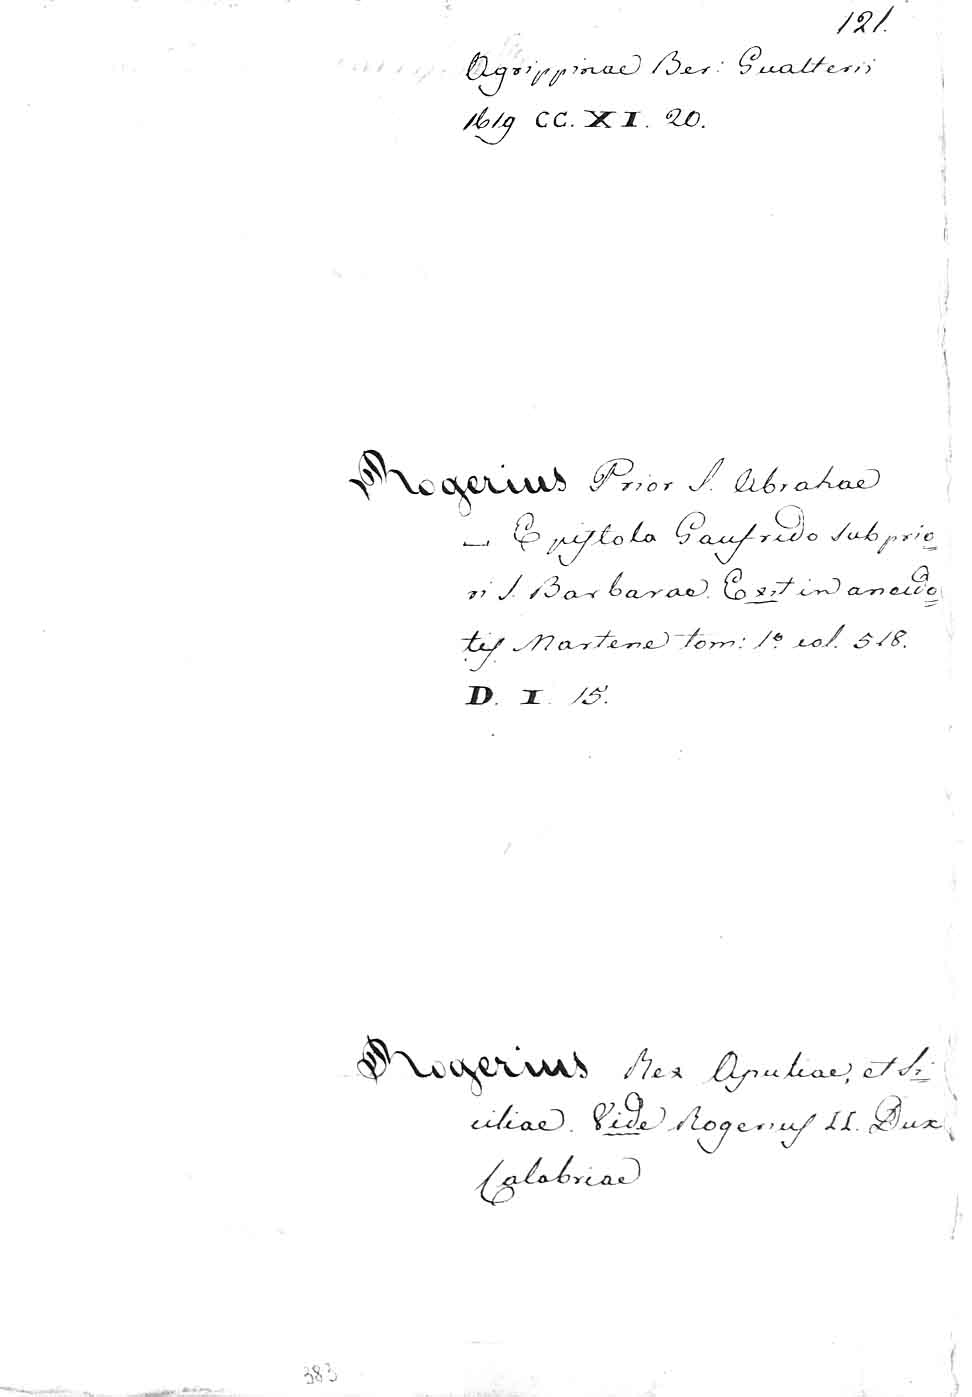 121.
Agrippinae Ber: Gualterii
1619 CC. XI. 20.
Rogerius Prior S. Abrahae
— Epistola Gaufredo subprio
ri S. Barbarae. Exit in anecdo
tis Martene tom: 1º col. 518.
D. I. 15.
Rogerius Rex Apuliae, et Si
ciliae. Vide Rogerius II. Dux
Calabriae
383